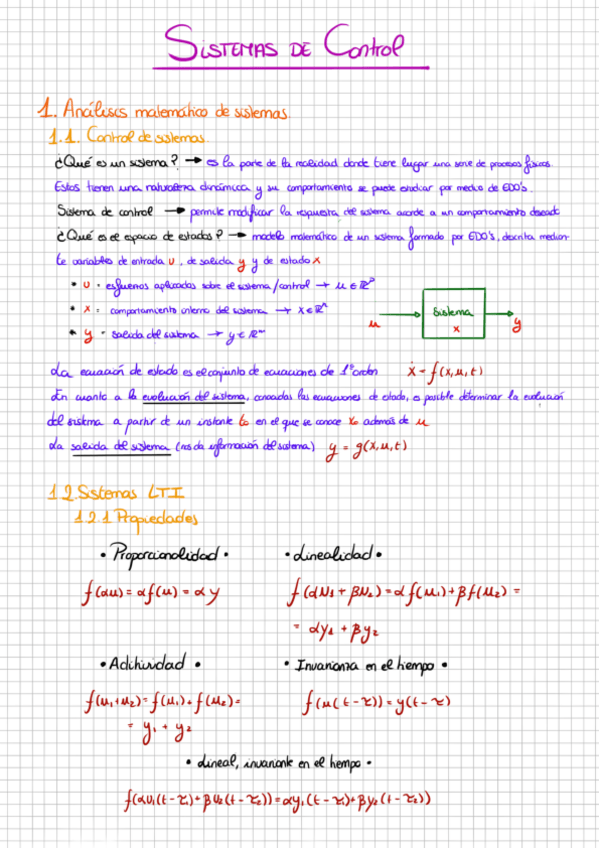 SISTEMAS DE Control
1. Análisis matemático de sistemas
1.1. Control de sistemas
¿Qué es un sistema? → es la parte de la realidad donde tiene lugar una serie de procesos físicos.
Estos tienen una naturaleza dinámica y su comportamiento se puede estudiar por medio de EDO's.
Sistema de control → permite modificar la respuesta del sistema acorde a un comportamiento desead
¿Qué es el espacio de estados? → modelo matemático de un sistema formado por EDO's, descrito median-
te variables de entrada u, de salida y y de estado x
• u = esfuerzos aplicados sobre el sistema/control → u ∈ ℝᵖ
• x = comportamiento interno del sistema → x ∈ ℝⁿ
• y = salida del sistema → y ∈ ℝᵐ
u → Sistema x → y
La ecuación de estado es el conjunto de ecuaciones de 1º orden ẋ = f(x,u,t)
En cuanto a la evolución del sistema, conocidas las ecuaciones de estado, es posible determinar la evolución
del sistema a partir de un instante t₀ en el que se conoce x₀ además de u
La salida del sistema (nos da información del sistema) y = g(x,u,t)
1.2 Sistemas LTI
1.2.1 Propiedades
• Proporcionalidad • • Linealidad •
f(αu) = αf(u) = αy f(αu₁ + βu₂) = αf(u₁) + βf(u₂) =
= αy₁ + βy₂
• Aditividad • • Invarianza en el tiempo •
f(u₁+u₂) = f(u₁) + f(u₂) = f(u(t-τ)) = y(t-τ)
= y₁ + y₂
• Lineal, invariante en el tiempo •
f(αu₁(t-τ₁) + βu₂(t-τ₂)) = αy₁(t-τ₁) + βy₂(t-τ₂))